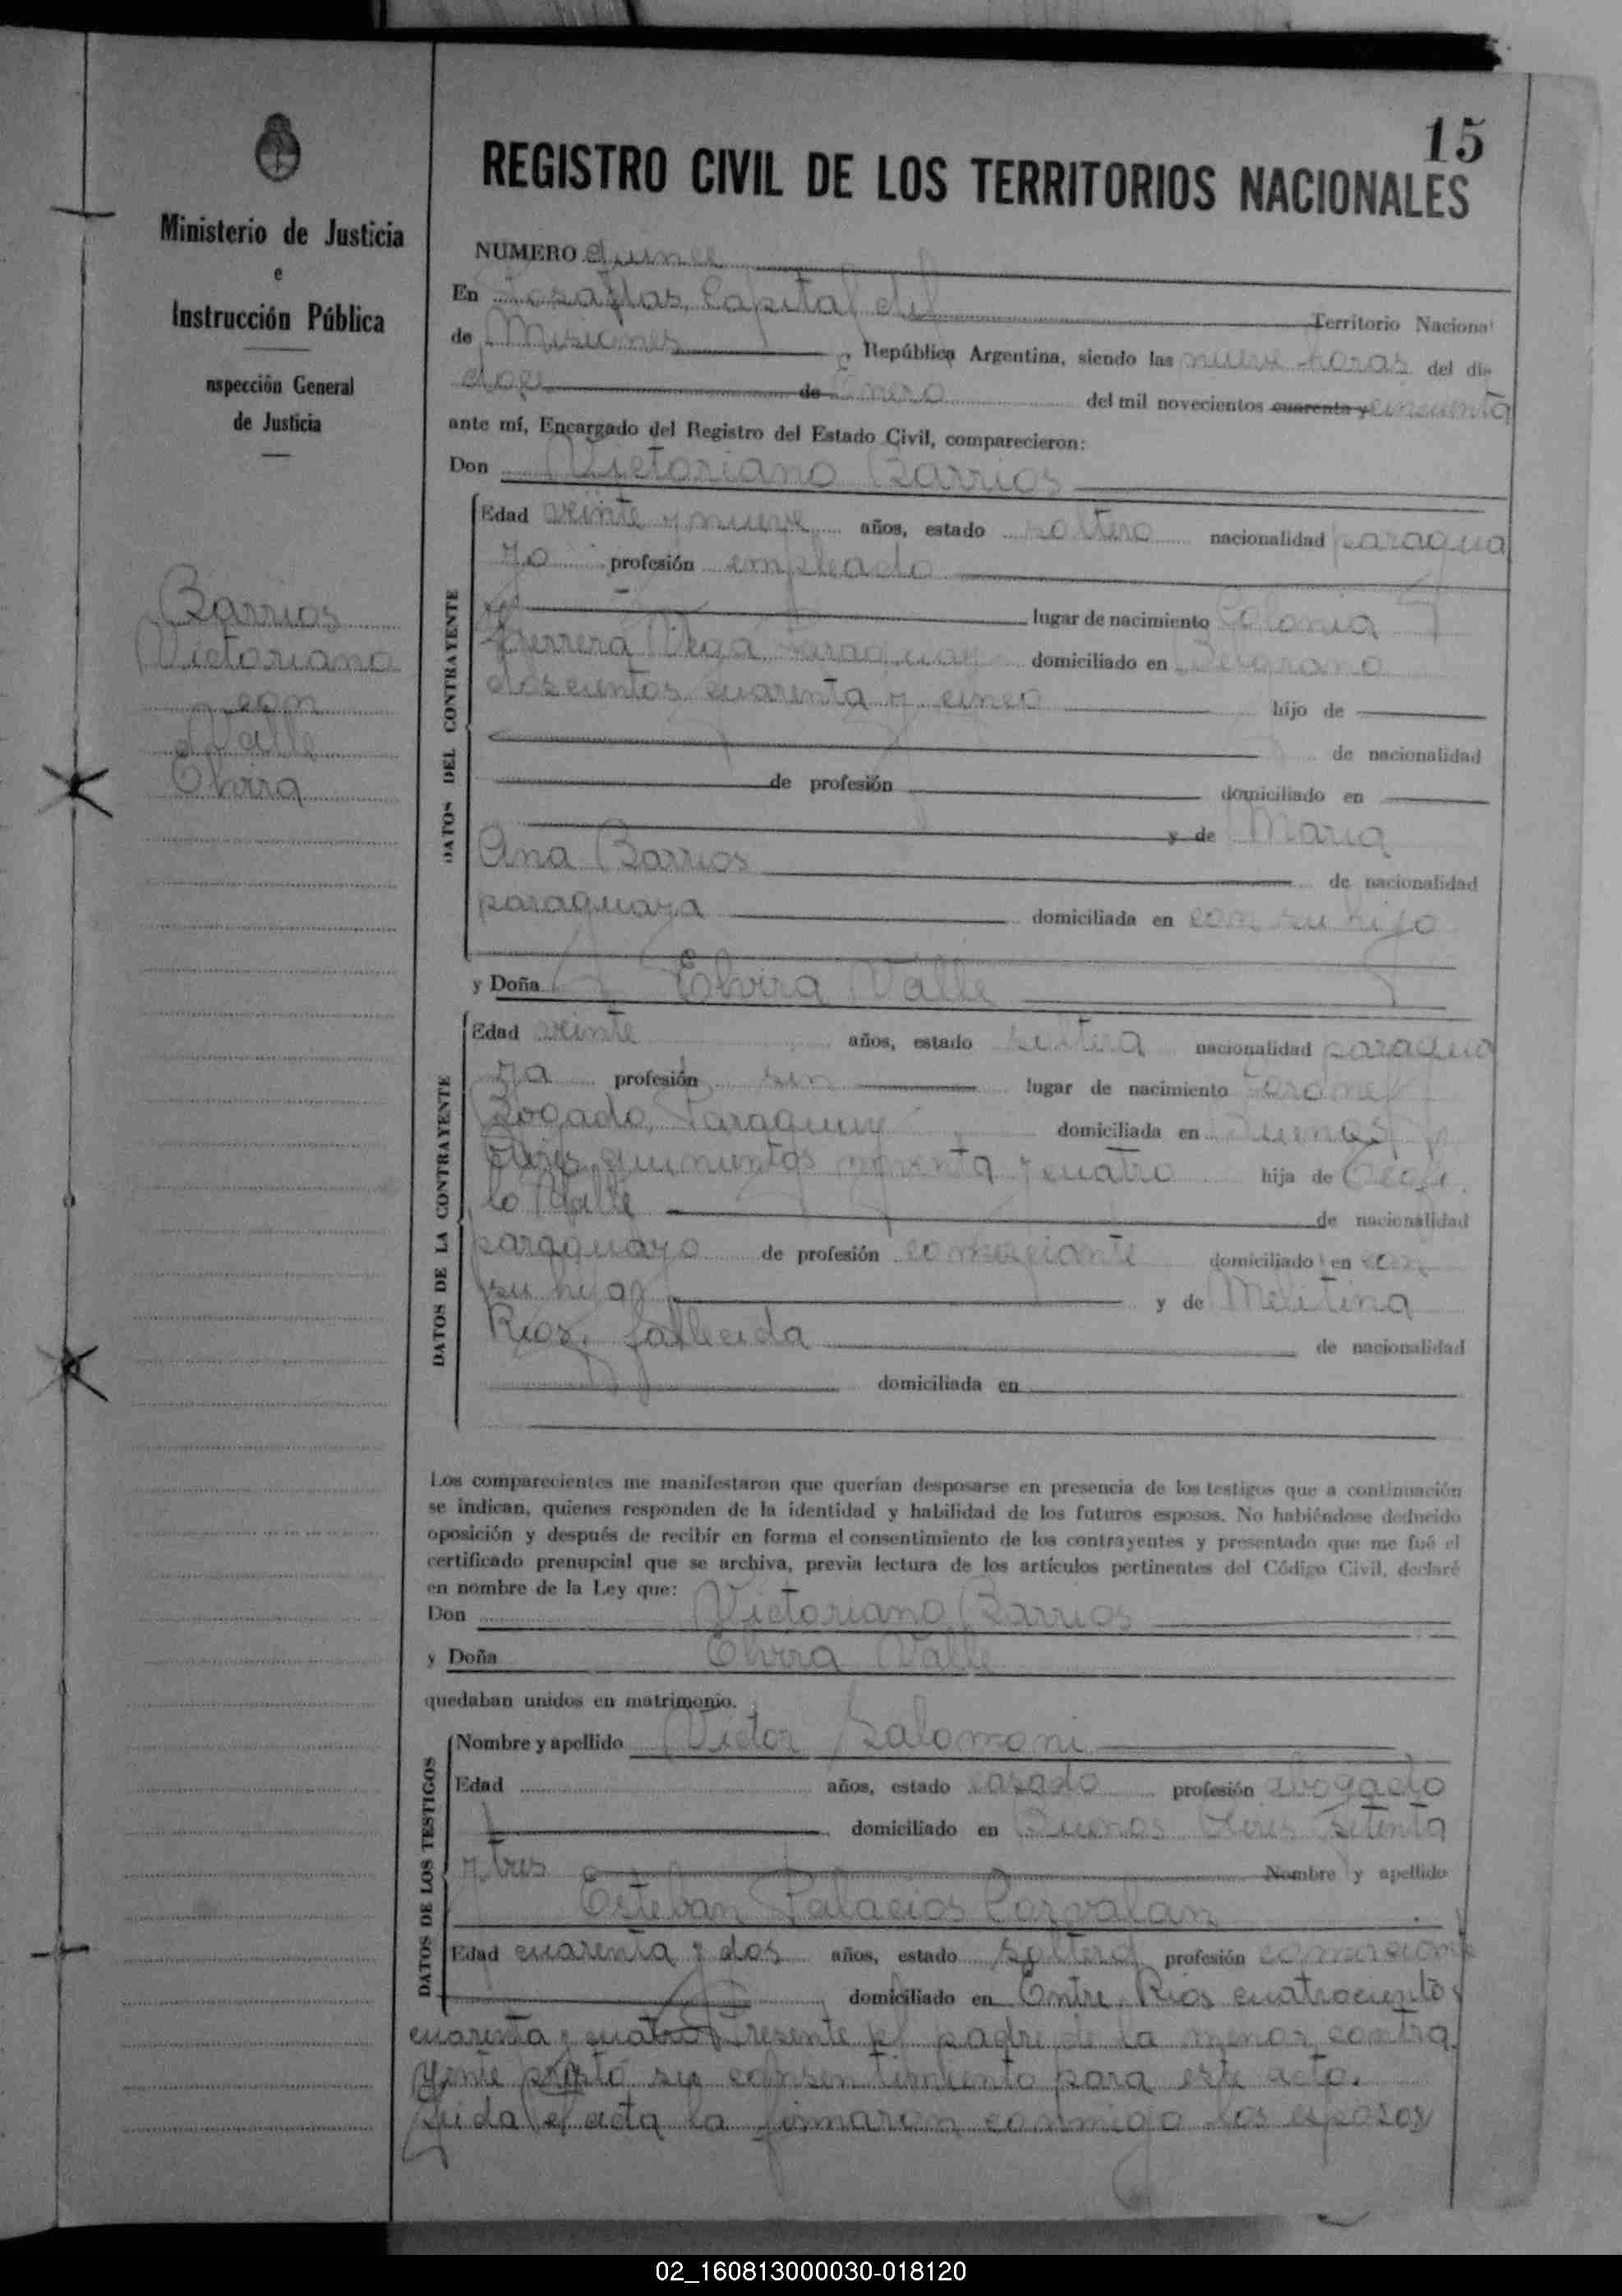 15
REGISTRO CIVIL DE LOS TERRITORIOS NACIONALES
Ministerio de Justicia
e
Instrucción Pública
nspección General
de Justicia
Barrios
Victoriano
con
Valle
Elvira
NUMERO quince
En Posadas, Capital del Territorio Naciona
de Misiones, República Argentina, siendo las nueve horas del dia
doce de Enero del mil novecientos cuarenta y cincuenta
ante mí, Encargado del Registro del Estado Civil, comparecieron:
Don Victoriano Barrios
DATOS DEL CONTRAYENTE
Edad veinte y nueve años, estado soltero nacionalidad paragua
yo profesión empleado
lugar de nacimiento Colonia
Herrera Vega, Paraguay domiciliado en Belgrano
doscientos cuarenta y cinco hijo de
de nacionalidad
de profesión domiciliado en
y de Maria
Ana Barrios de nacionalidad
paraguaya domiciliada en con su hijo
y Doña Elvira Valle
DATOS DE LA CONTRAYENTE
Edad veinte años, estado soltera nacionalidad paragua
ya profesión sin lugar de nacimiento Coronel
Bogado, Paraguay domiciliada en Buenos
Aires quinientos y cuatro hija de
lo Valle de nacionalidad
paraguayo de profesión comerciante domiciliado en con
su hija y de Melitina
Rios, fallecida de nacionalidad
domiciliada en
Los comparecientes me manifestaron que querían desposarse en presencia de los testigos que a continuación
se indican, quienes responden de la identidad y habilidad de los futuros esposos. No habiéndose deducido
oposición y después de recibir en forma el consentimiento de los contrayentes y presentado que me fué el
certificado prenupcial que se archiva, previa lectura de los artículos pertinentes del Código Civil, declaré
en nombre de la Ley que:
Don Victoriano Barrios
y Doña Elvira Valle
quedaban unidos en matrimonio.
DATOS DE LOS TESTIGOS
Nombre y apellido Victor Salomoni
Edad años, estado casado profesión abogado
domiciliado en Buenos Aires setenta
y tres Nombre y apellido
Esteban Palacios Corvalan
Edad cuarenta y dos años, estado soltero profesión comerciante
domiciliado en Entre Rios cuatrocientos
cuarenta y cuatro Presente el padre de la menor contra
yente prestó su consentimiento para este acto.
Leida el acta la firmaron conmigo los esposos
02_160813000030-018120